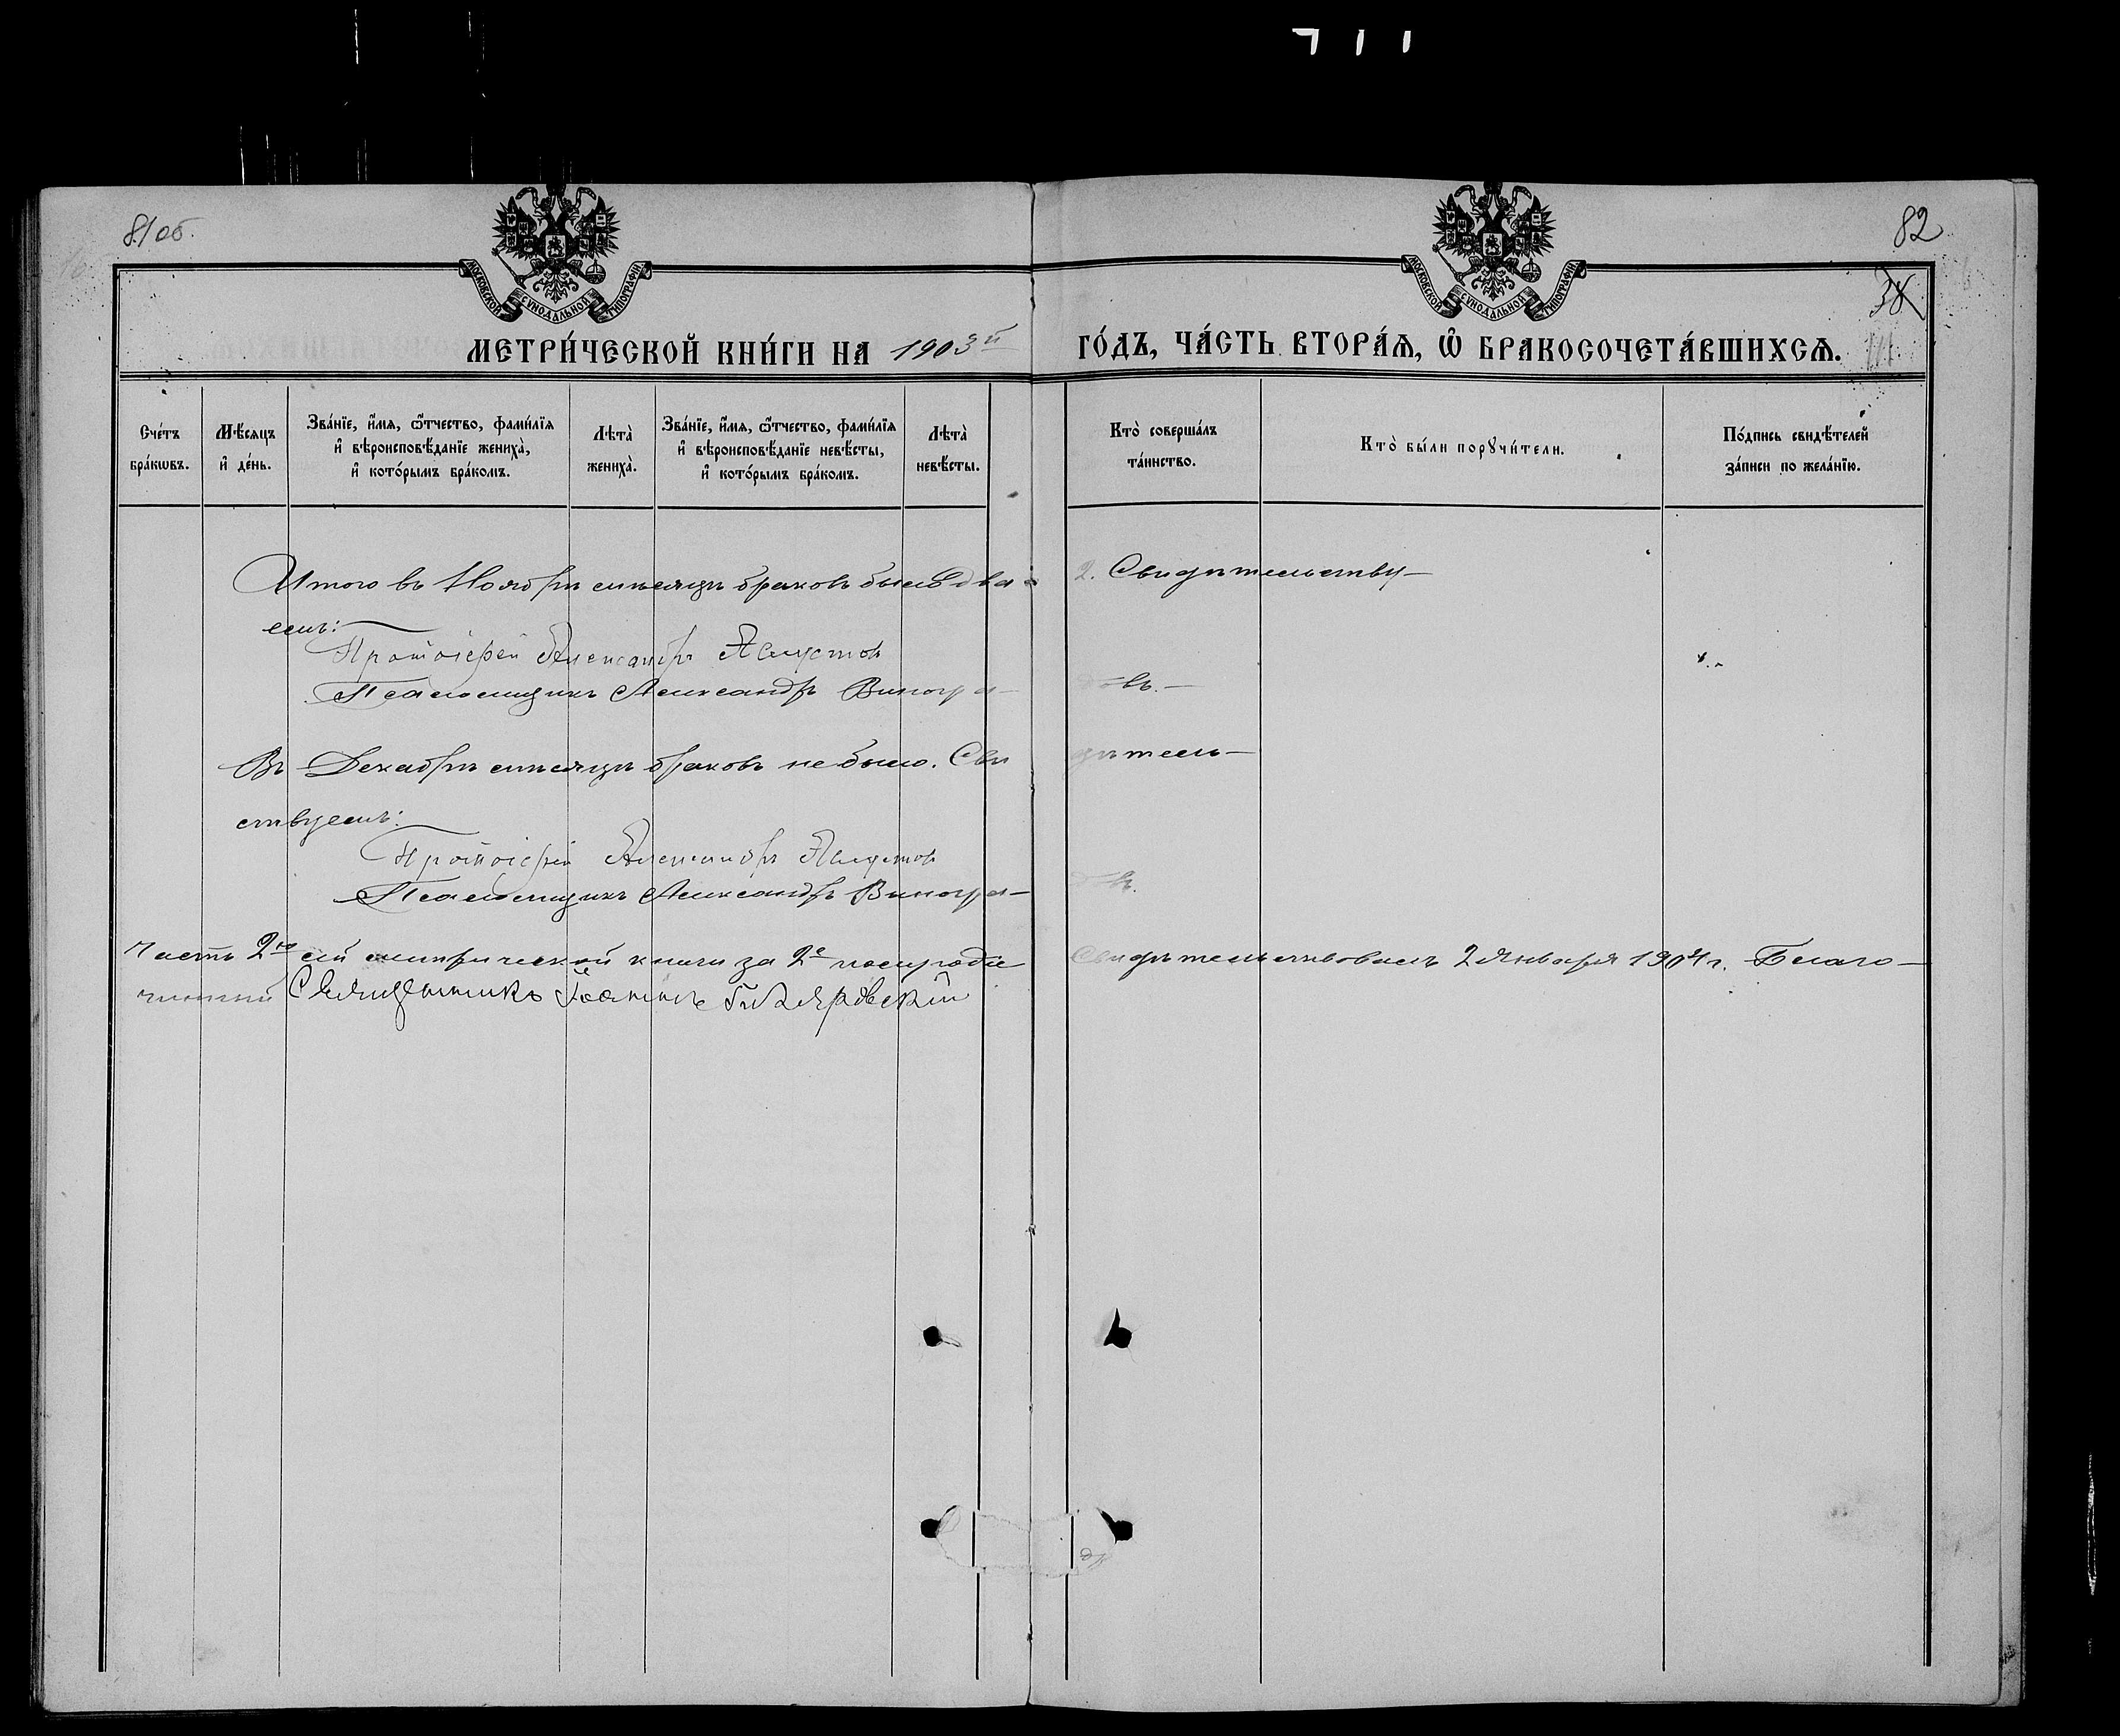 711
81 об.
82
38
МОСКОВСКОЙ СѴНОДАЛЬНОЙ ТИПОГРАФІИ
МОСКОВСКОЙ СѴНОДАЛЬНОЙ ТИПОГРАФІИ
МЕТРИ́ЧЕСКОЙ КНИ́ГИ НА 1903й ГО́ДЪ, ЧА́СТЬ ВТОРА́Ѧ, Ѡ БРАКОСОЧЕТА́ВШИХСѦ.
Сче́тъ бра́кѡвъ.
Мѣ́сяцъ и҆ де́нь.
Зва́нїе, и҆́мя, ѻ҆́тчество, фами́лїя и҆ вѣроисповѣ́данїе жениха̀, и҆ кото́рымъ бра́комъ.
Лѣта̀ жениха̀.
Зва́нїе, и҆́мя, ѻ҆́тчество, фами́лїя и҆ вѣроисповѣ́данїе невѣ́сты, и҆ кото́рымъ бра́комъ.
Лѣта̀ невѣ́сты.
Кто̀ соверша́лъ та́инство.
Кто̀ бы́ли порꙋчи́тели.
По́дпись свидѣ́телей за́писи по жела́нїю.
Итого въ Ноябрѣ мѣсяцѣ браковъ было два 2. Свидѣтельству-
емъ:
Протоіерей Александръ Августов
Псаломщикъ Александръ Виногра-довъ.
Въ Декабрѣ мѣсяцѣ браковъ не было. Свидѣтель-
ствуемъ:
Протоіерей Александръ Августов
Псаломщикъ Александръ Виногра-довъ.
Часть 2ю сей метрической книги за 2е полугодіе Свидѣтельствовалъ 2 Января 1904 г. Благо-
чинный Священникъ Іоаннъ